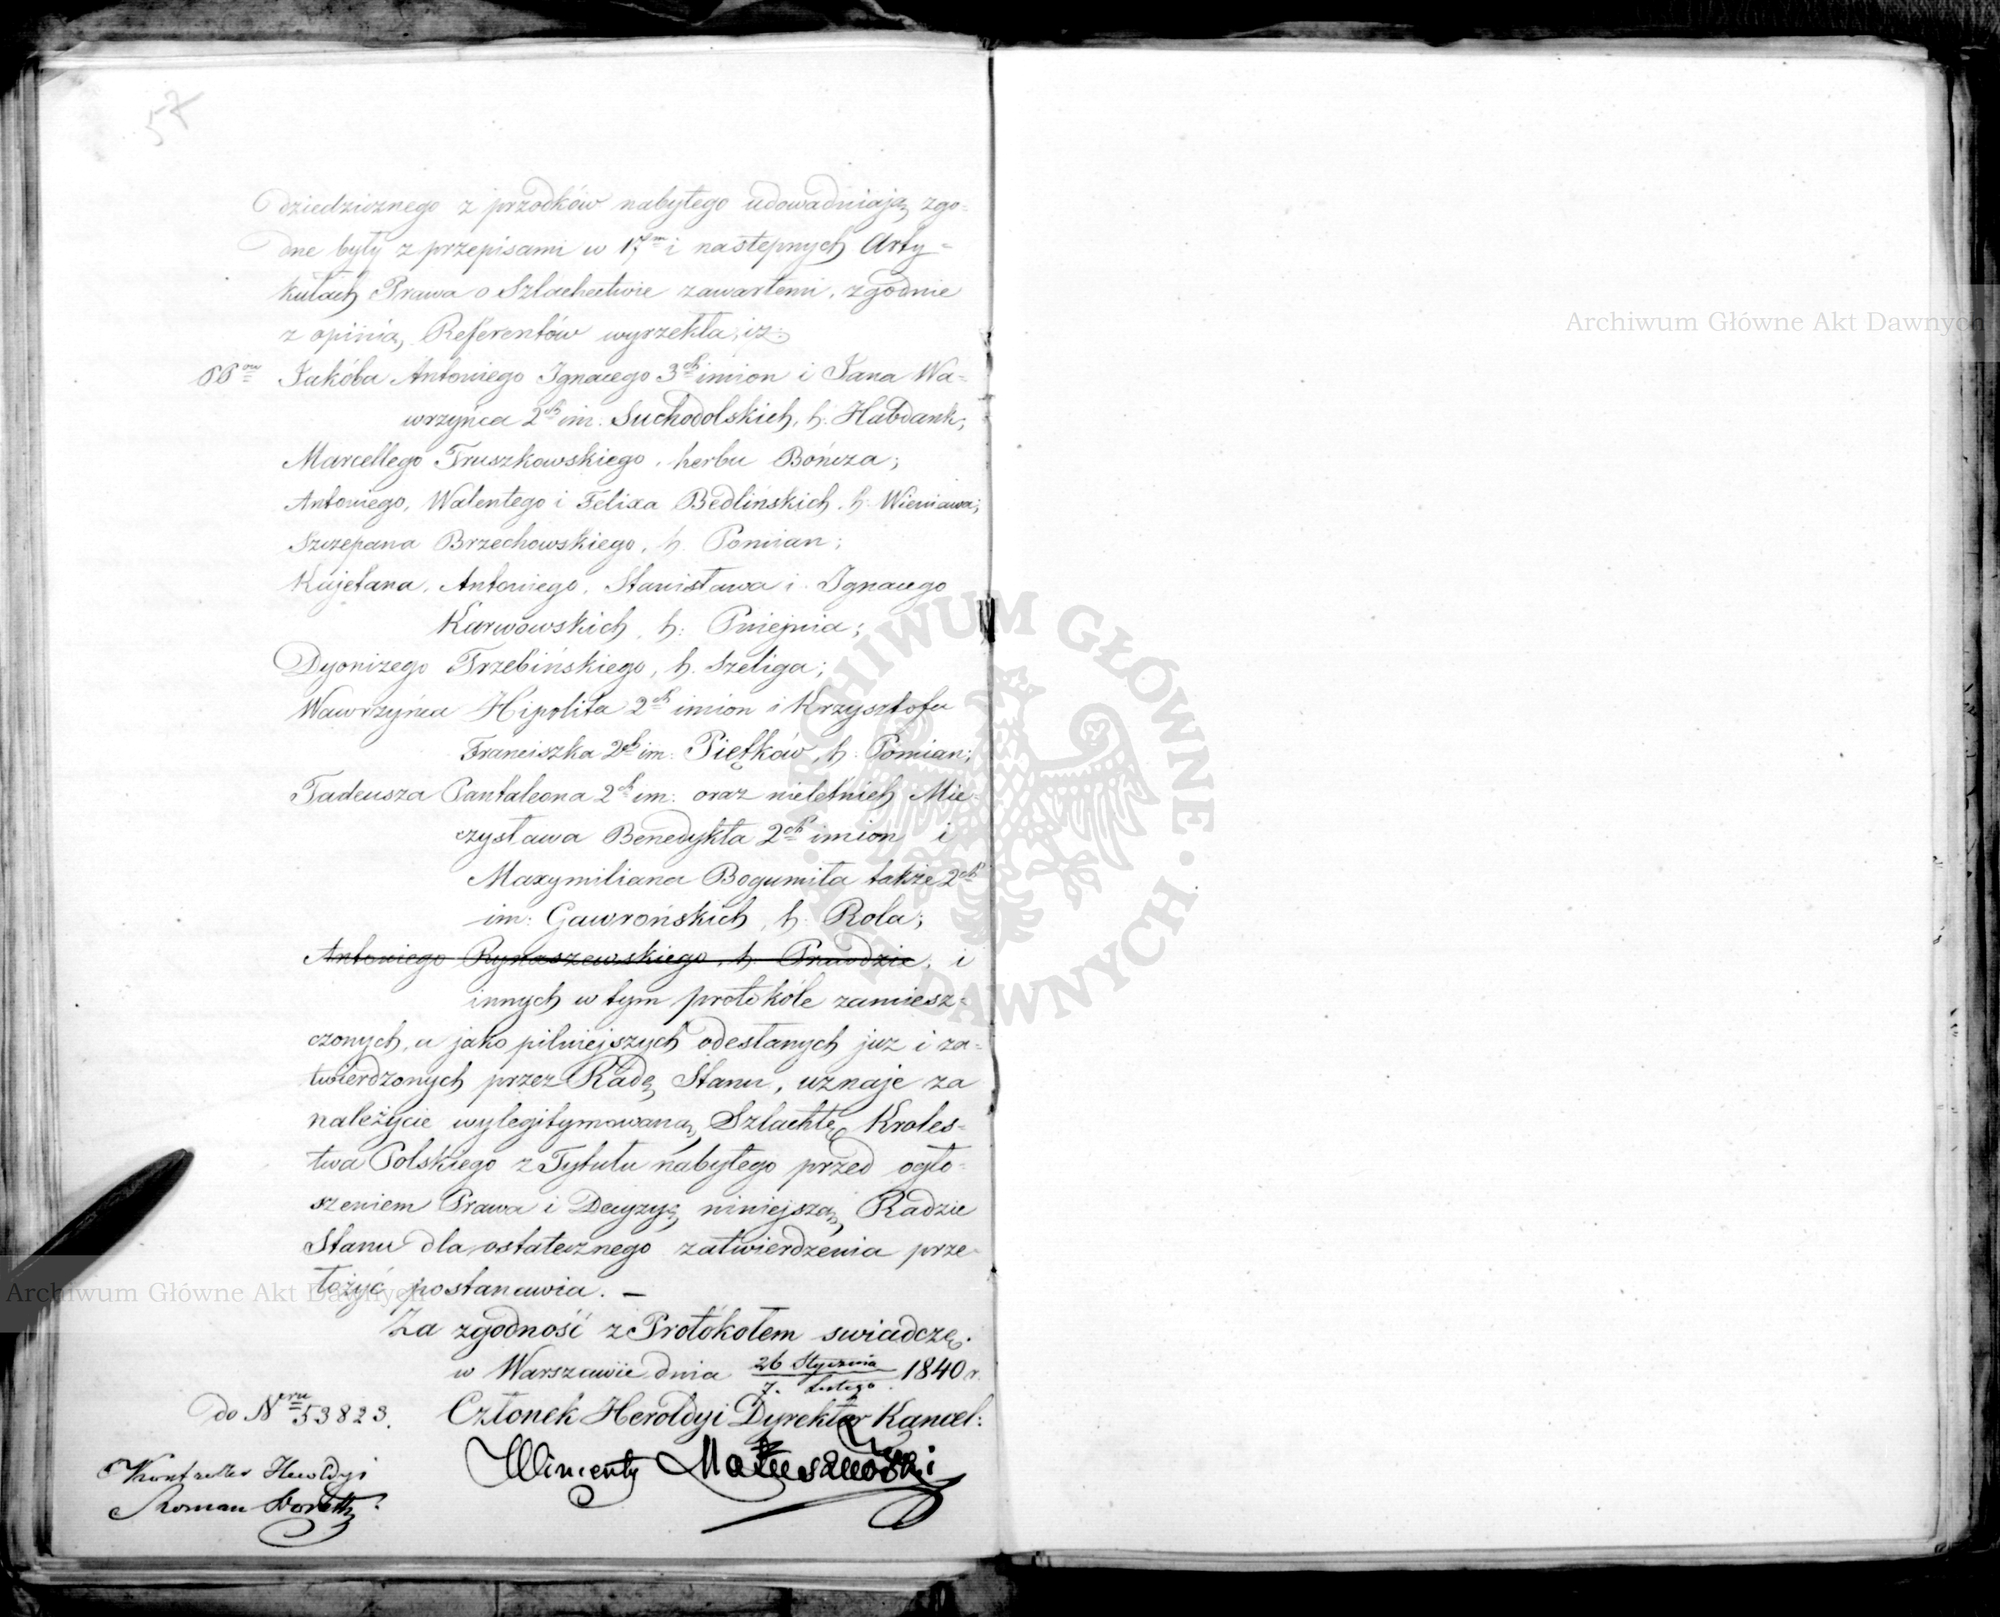 57
dziedzicznego z przodków nabytego udowadniają zgo-
dne były z przepisami w 17m i nastepnych Arty-
kułach Prawa o Szlachectwie zawartemi, zgodnie
z opinią Referentów wyrzekła, iz:
PP ów Jakóba Antoniego Ignacego 3ch imion i Jana Wa-
wrzyńca 2ch im. Suchodolskich, h. Habdank;
Marcellego Truszkowskiego, herbu Bończa;
Antoniego, Walentego i Felixa Bedlińskich, h. Wieniawa;
Szczepana Brzechowskiego, h. Pomian;
Kajetana, Antoniego, Stanisława i Ignacego
Karwowskich, h: Pniejnia;
Dyonizego Trzebińskiego, h. Szeliga;
Wawrzyńca Hipolita 2ch imion i Krzysztofa
Franciszka 2ch im: Piętków, h. Pomian;
Tadeusza Pantaleona 2ch im: oraz nieletnich Mie-
czysława Benedykta 2ch imion i
Maxymiliana Bogumiła także 2ch
im: Gawrońskich, h. Rola;
Antoniego Rynaszewskiego, h. Prawdzic, i
innych w tym protokóle zamiesz-
czonych, a jako pilniejszych odesłanych juz i za-
twierdzonych przez Radę Stanu, uznaje za
należycie wylegitymowaną Szlachtę Króles-
twa Polskiego z Tytułu nabytego przed ogło-
szeniem Prawa i Decyzyę niniejszą Radzie
Stanu dla ostatecznego zatwierdzenia prze-
łożyć postanawia. —
Za zgodność z Protókołem swiadczę.
w Warszawie dnia 26 Stycznia / 7. Lutego 1840 r.
do Nru 53823. Członek Heroldyi Dyrektor Kancel:
Wincenty Matuszewski
Kontroller Heroldyi
Roman
Archiwum Główne Akt Dawnych
Archiwum Główne Akt Dawnych
ARCHIWUM GŁÓWNE · AKT DAWNYCH ·